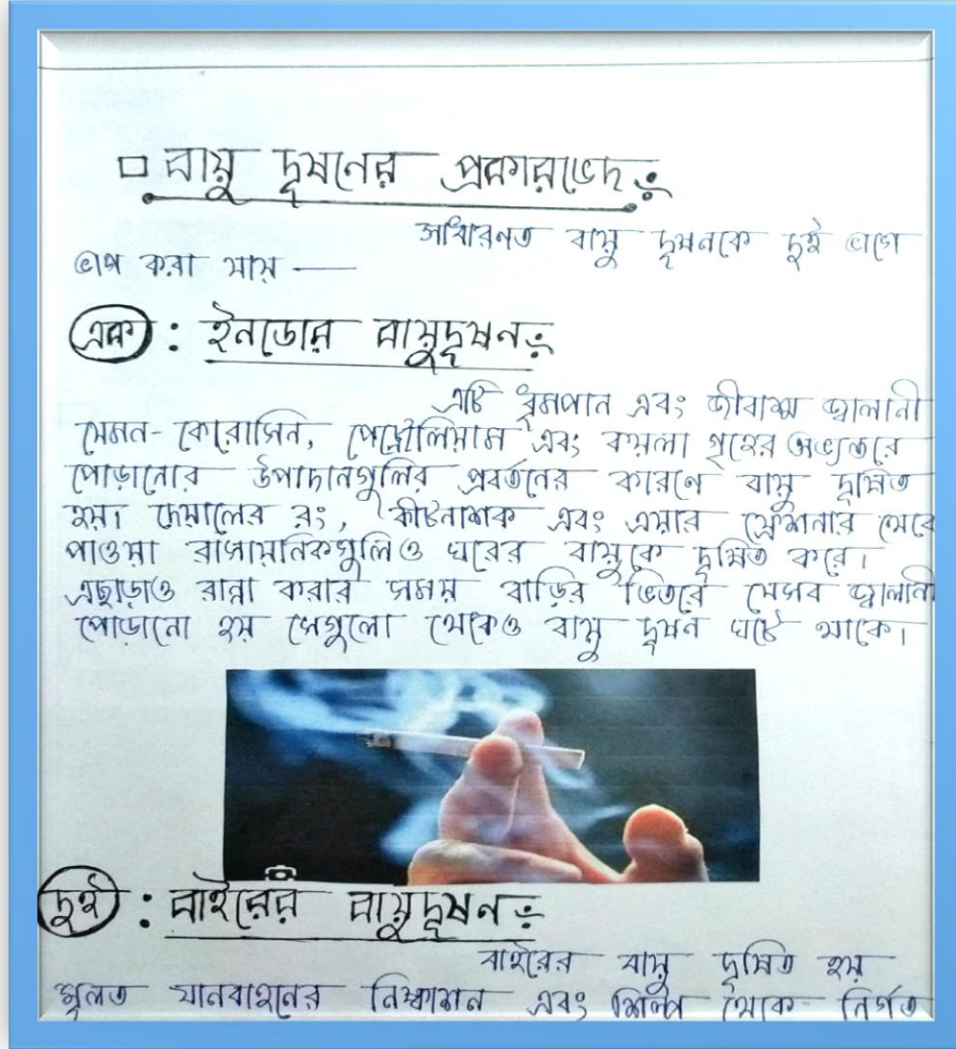 □ বায়ু দূষনের প্রকারভেদ ঃ
সাধারনত বায়ু দূষনকে দুই ভাগে
ভাগ করা যায় —
এক : ইনডোর বায়ুদূষন ঃ
এটি ধূমপান এবং জীবাশ্ম জ্বালানী
যেমন- কেরোসিন, পেট্রোলিয়াম এবং কয়লা গৃহের অভ্যন্তরে
পোড়ানোর উপাদানগুলির প্রবর্তনের কারনে বায়ু দূষিত
হয়। দেয়ালের রং, কীটনাশক এবং এয়ার ফ্রেশনার থেকে
পাওয়া রাসায়নিকগুলিও ঘরের বায়ুকে দূষিত করে।
এছাড়াও রান্না করার সময় বাড়ির ভিতরে যেসব জ্বালানি
পোড়ানো হয় সেগুলো থেকেও বায়ু দূষন ঘটে থাকে।
দুই : বাইরের বায়ুদূষন ঃ
বাইরের বায়ু দূষিত হয়
মূলত যানবাহনের নিষ্কাশন এবং শিল্প থেকে নির্গত